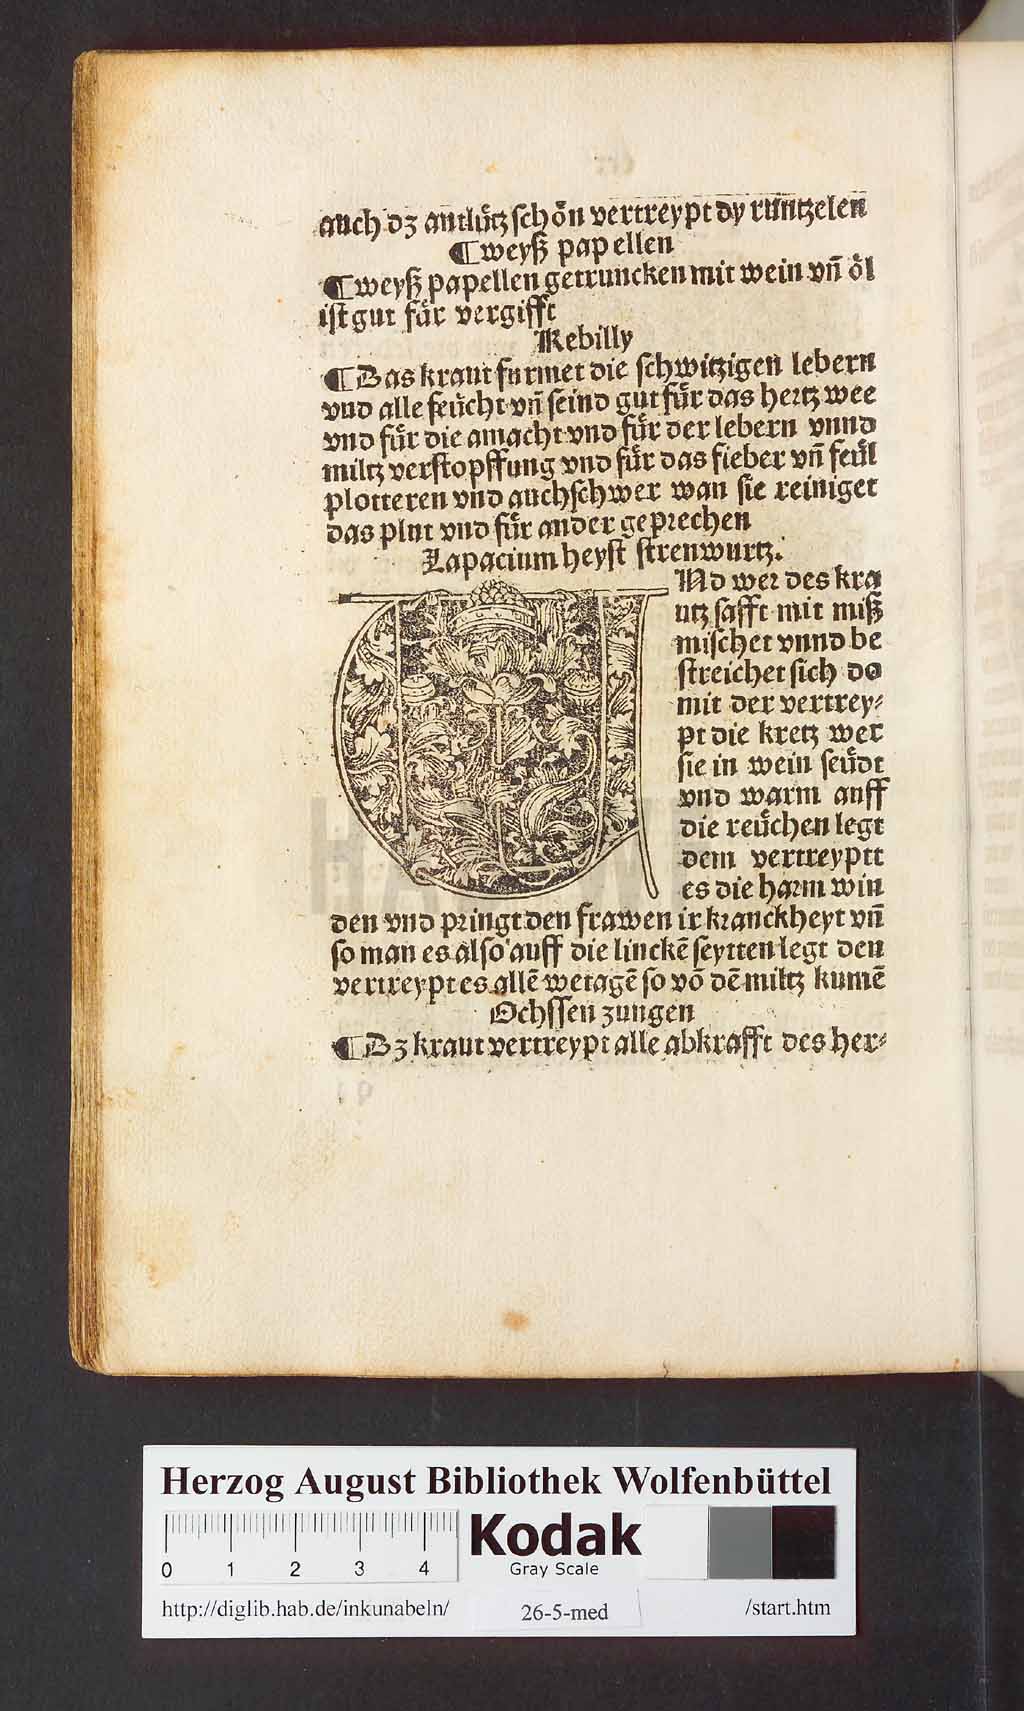 auch dz antlütz schön vertreypt dy runtzelen
¶ weyß papellen
¶ weyß papellen getruncken mit wein vñ öl
ist gut für vergifft
Kebilly
¶ Das kraut furmet die schwitzigen lebern
vnd alle feücht vñ seind gut für das hertz wee
vnd für die amacht vnd für der lebern vnnd
miltz verstopffung vnd für das fieber vñ feül
plotteren vnd auch schwer wan sie reiniget
das plut vnd für ander geprechen
Lapacium heyst strenwurtz.
VNd wer des kra
utz safft mit miß
mischet vnnd be
streichet sich do
mit der vertrey⸗
pt die kretz wer
sie in wein seüdt
vnd warm auff
die reüchen legt
dem vertreyptt
es die harm win
den vnd pringt den frawen ir kranckheyt vñ
so man es also auff die linckē seytten legt den
vertreypt es allē wetagē so vō dē miltz kumē
Ochssen zungen
¶ Dz kraut vertreypt alle abkrafft des her⸗
Herzog August Bibliothek Wolfenbüttel
0 1 2 3 4
Kodak
Gray Scale
http://diglib.hab.de/inkunabeln/ 26-5-med /start.htm